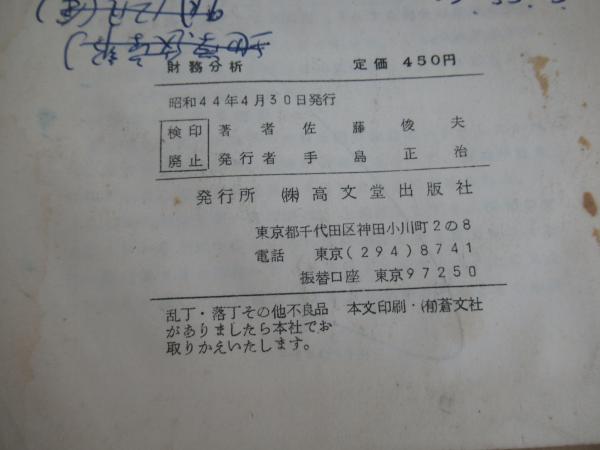 財務分析 定価 450円
昭和44年4月30日発行
検印 著者 佐藤俊夫
廃止 発行者 手島正治
発行所 ㈱高文堂出版社
東京都千代田区神田小川町2の8
電話 東京(294)8741
振替口座 東京97250
乱丁・落丁その他不良品 本文印刷・㈲蒼文社
がありましたら本社でお
取りかえいたします。